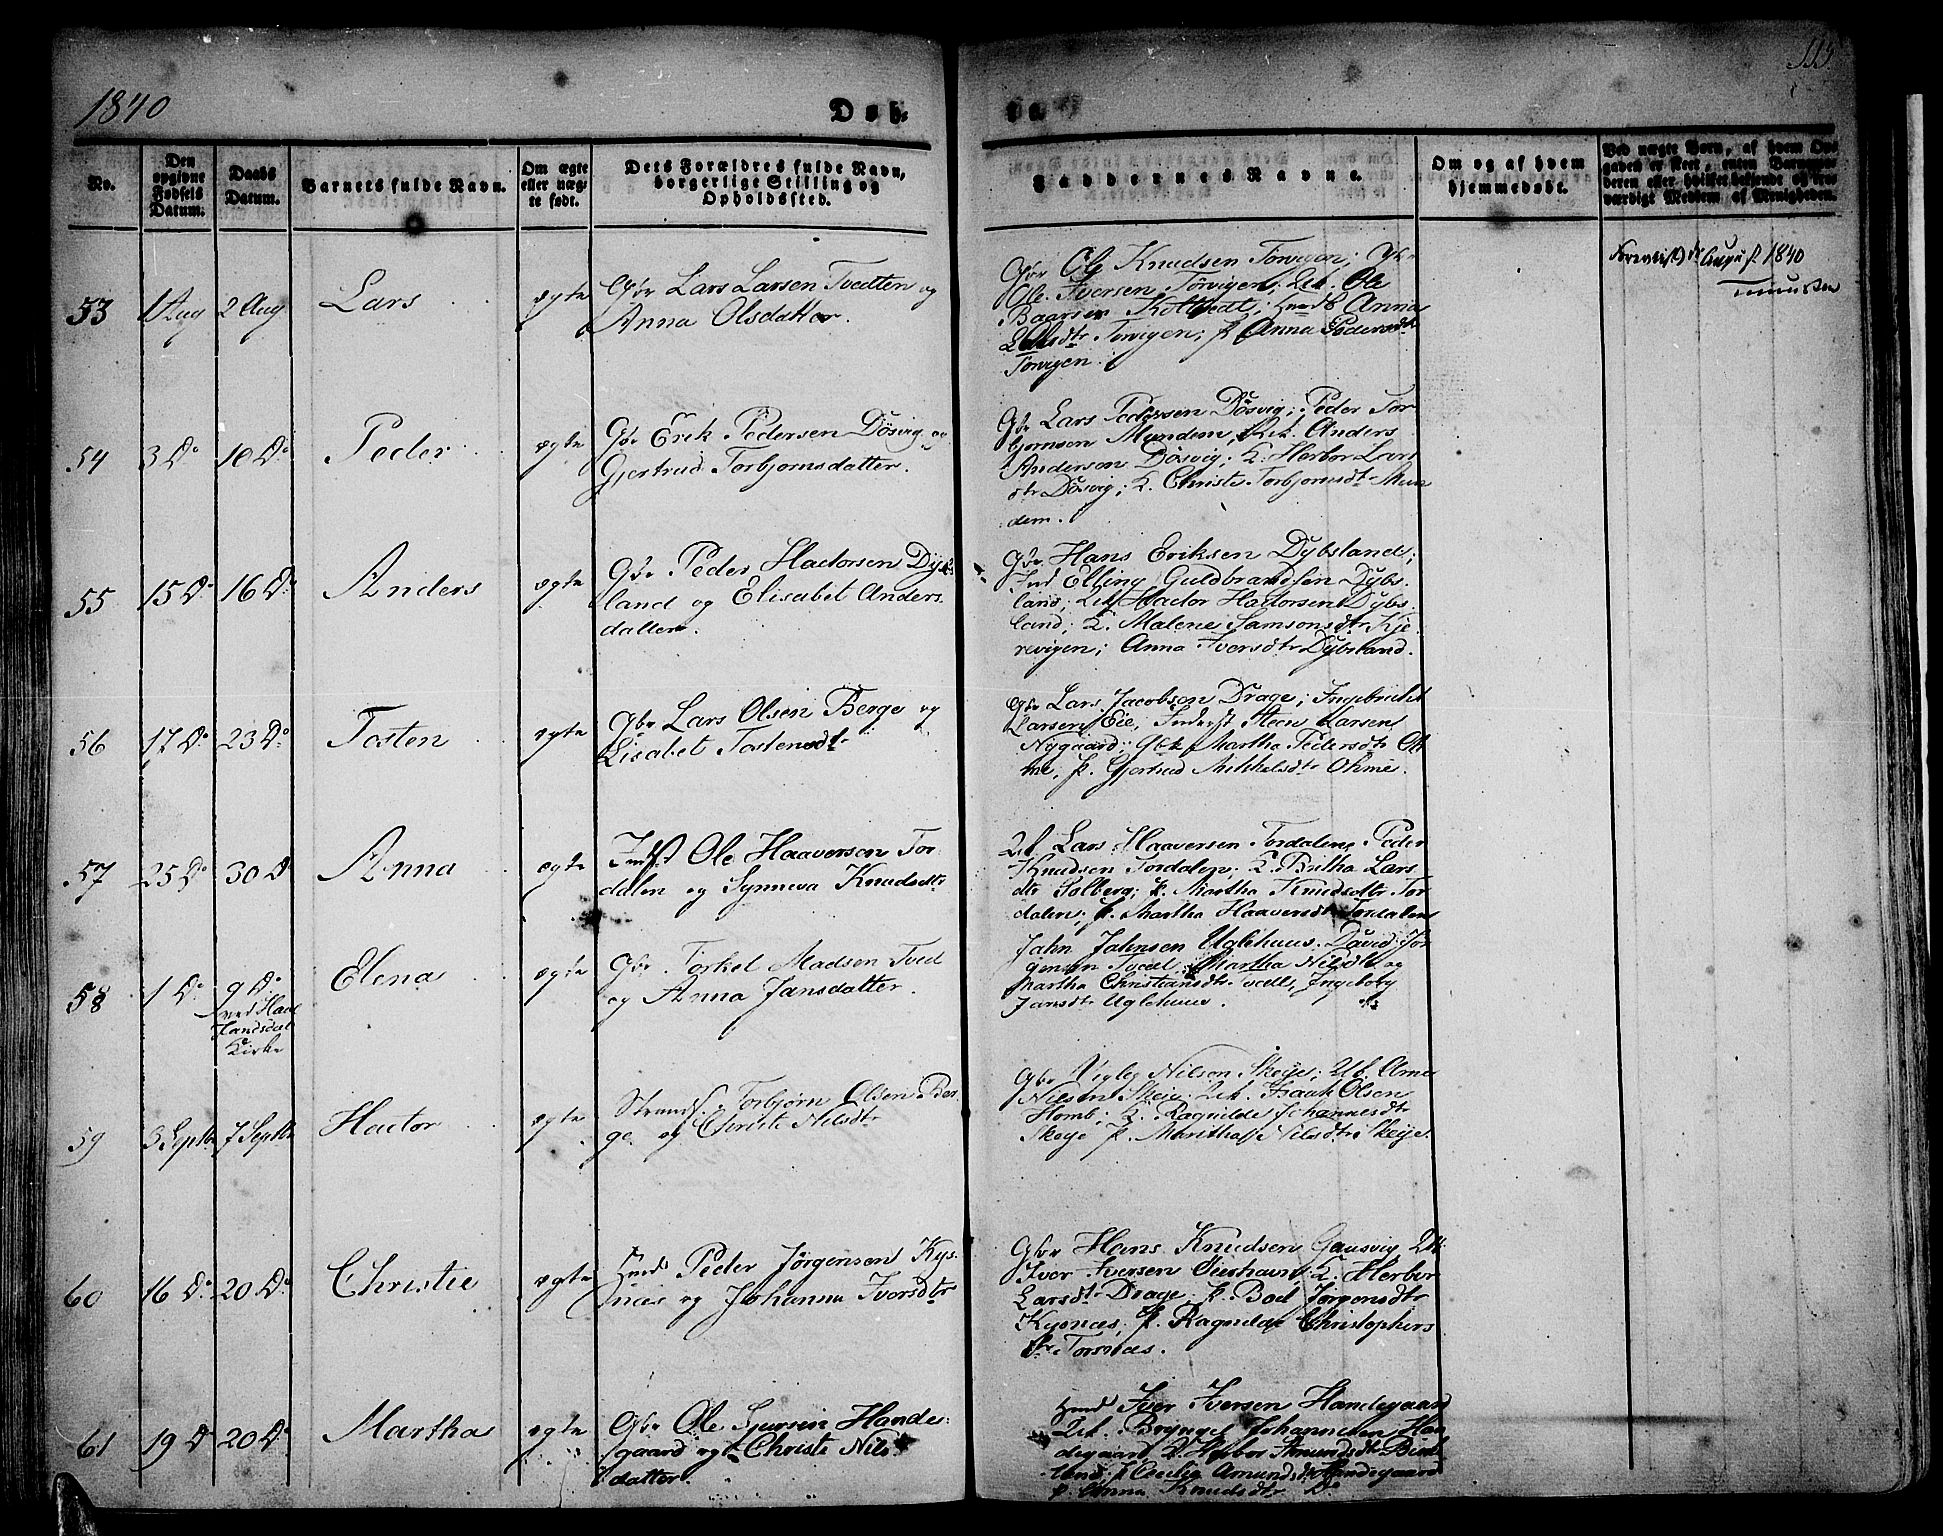 1840
Døb-
te.
115
No.
Den
opgivne
Fødsels
Datum.
Daabs
Datum.
Barnets fulde Navn.
Om ægte
eller uæg-
te født.
Dets Forældres fulde Navn,
borgerlige Stilling og
Opholdssted.
Faddernes Navne.
Om og af hvem
hjemmedøbt.
Ved uægte Born, af hvem Op-
gaven er skeet, enten Barnemo-
deren eller hvilket hæftende og tro-
værdigt Medlem af Menigheden.
53
1 Aug
2 Aug
Lars
ægte
Gbr Lars Larsen Tvedten og
Anna Olsdatter.
Gbr Ole Knudsen Torvigen;
Ole Iversen Torvigen; Ole
Baarsen Koltvedt; Anna
Torvigen; P. Anna Pedersdtr
Torvigen.
August 1840
54
3 Do
10 Do
Peder
ægte
Gbr Erik Pedersen Døsvig og
Gjertrud Torbjornsdatter.
Gbr Lars Pedersen Døsvig; Peder Tor-
bjornsen Mundem; Anders
Andersen Døsvig; K. Herbor Lars
dtr Døsvig; K. Christi Torbjornsdtr Mun
dem.
55
15 Do
16 Do
Anders
ægte
Gbr Peder Hactorsen Dybs-
land og Elisabet Anders
datter.
Gbr Hans Eriksen Dybsland;
Ind Elling Guldbrandsen Dybs-
land; Hactor Hactorsen Dybs-
land; K. Malene Samsonsdtr Kje
revigen; Anna Iversdtr Dybsland.
56
17 Do
23 Do
Tosten
ægte
Gbr Lars Olsen Berge og
Lisabet Tostensdtr
Gbr Lars Jacobsen Drage; Ingebricht
Larsen Eie; Steen Larsen
Nygaard; Gbk Martha Pedersdtr Oh
me, P. Gjertrud Mikkelsdtr Ohme.
57
25 Do
30 Do
Anna
ægte
Indst Ole Haaversen Tor-
dalen og Synneva Knudsdtr
Lars Haaversen Tordalen; Peder
Knudsen Tordalen; K. Britha Lars
dtr Solberg; P. Martha Knudsdtr Tor
dalen; P. Martha Haaversdtr Tordalen
58
1 Do
9 Do
ved
Kirke
Elena
ægte
Gbr Torkel Madsen Tved
og Anna Jansdatter.
Jahn Jahnsen Uglehuus. David Jør
gensen Tvedt, Martha Nilsdtr og
Martha Christiansdtr Tvedt, Ingeborg
Jansdtr Uglehuus.
59
3 Septbr
7 Septbr
Hactor
ægte
Strands. Torbjørn Olsen Ber
ge og Christi Nilsdtr
Gbr Vigleg Nilsen Skeije; Arne
Nilsen Skeije; Isaak Olsen
Homb; K. Ragnilde Johannesdtr
Skeije P. Martha Nilsdtr Skeije.
60
16 Do
20 Do
Christie
ægte
Huusd Peder Jørgensen Kys-
næs og Johanna Iversdtr
Gbr Hans Knudsen Gausvig
Iver Iversen; K. Herbor
Larsdtr Drage; P. Boel Jørgensdtr
Kysnæs; P. Ragnilde Christophers
dtr Torsnæs.
61
19 Do
20 Do
Martha
ægte
Gbr Ole Sjursen Hande-
gaard og Christi Nils-
datter.
Huusd Iver Iversen Handegaard
Brynjel Johannesen Han
degaard, K. Herbor Amundsdtr
land; P. Cecilia Amundsdtr Handegaard
P. Anna Knudsdtr Do